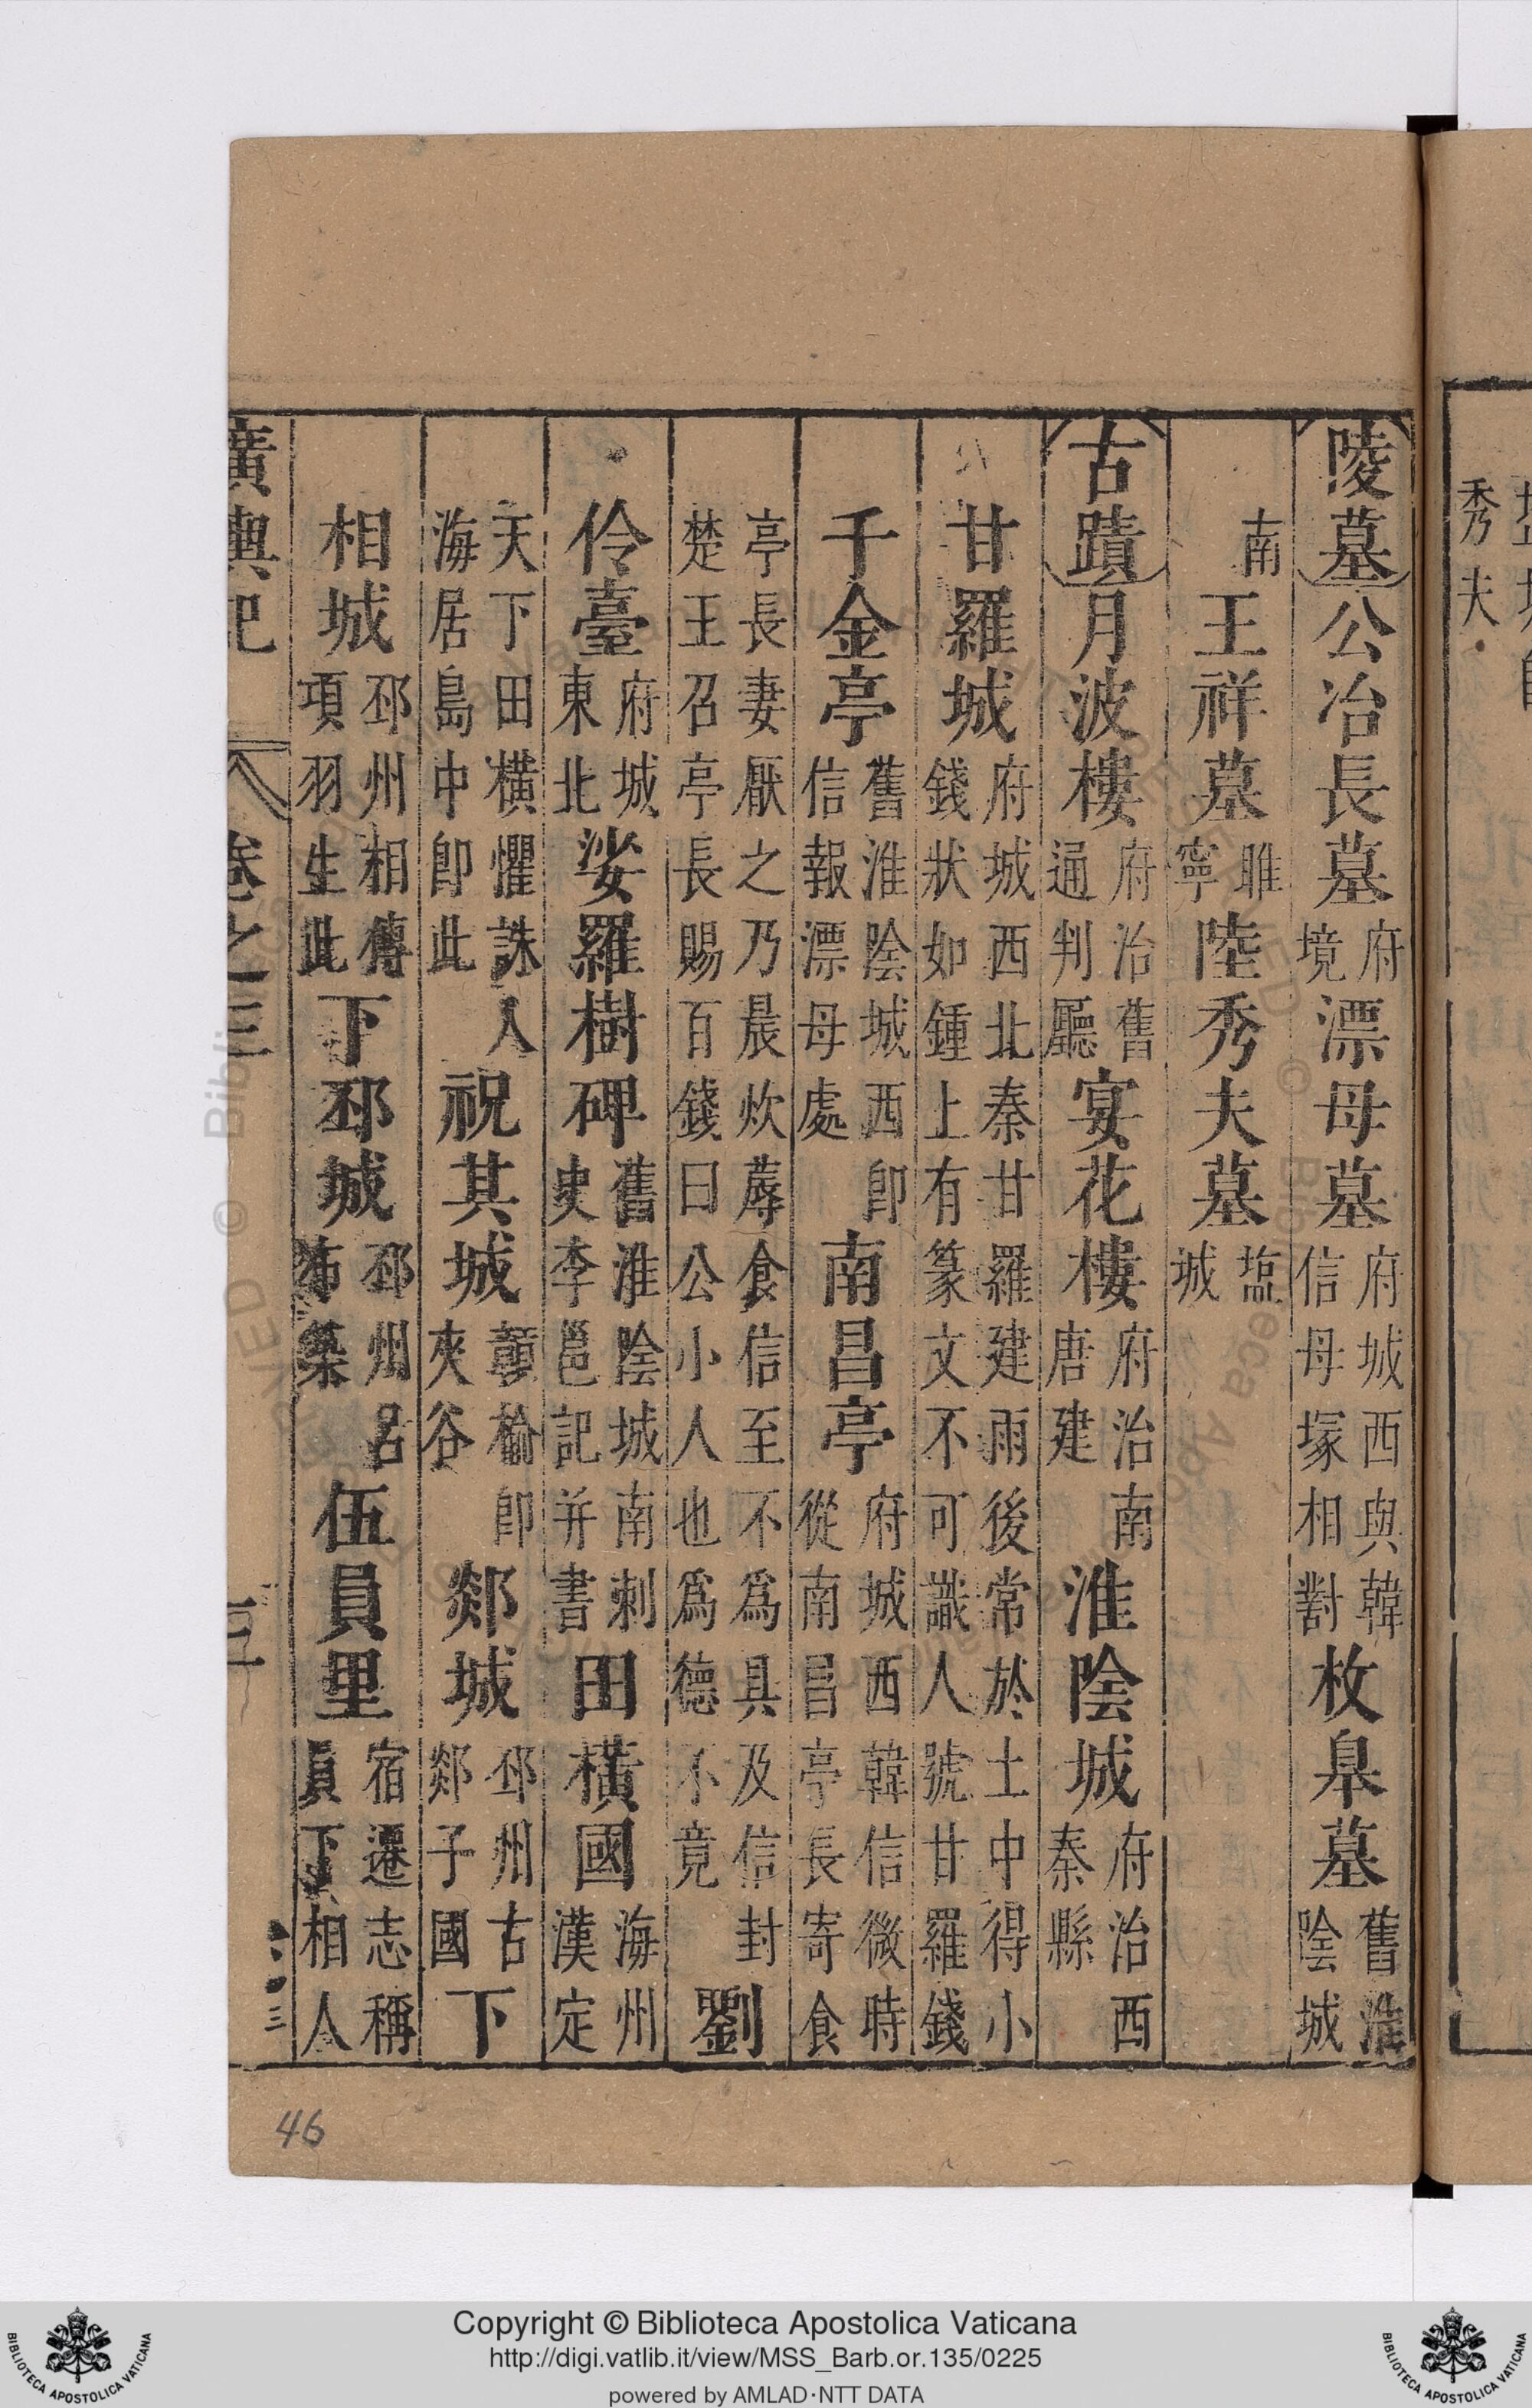 陵墓公冶長墓府境漂母墓府城西與韓信母塚相對枚臯墓舊淮陰城
南王祥墓睢寧陸秀夫墓塩城
古蹟月波樓府治舊通判廳宴花樓府治南唐建淮陰城府治西秦縣
甘羅城府城西北秦甘羅建雨後常於土中得小錢狀如鍾上有篆文不可識人號甘羅錢
千金亭舊淮陰城西即信報漂母處南昌亭府城西韓信微時從南昌亭長寄食
亭長妻厭之乃晨炊蓐食信至不爲具及信封楚王召亭長賜百錢曰公小人也爲德不竟劉
伶臺府城東北娑羅樹碑舊淮陰城南刺史李邕記并書田橫國海州漢定
天下田橫懼誅入海居島中即此祝其城顫榆即夾谷郯城邳州古郯子國下
相城邳州相傳項羽生此下邳城邳州呂布築伍員里宿遷志稱員下相人
廣輿記 卷之三 三
秀夫
46
Copyright © Biblioteca Apostolica Vaticana
http://digi.vatlib.it/view/MSS_Barb.or.135/0225
powered by AMLAD·NTT DATA
BIBLIOTECA APOSTOLICA VATICANA
BIBLIOTECA APOSTOLICA VATICANA